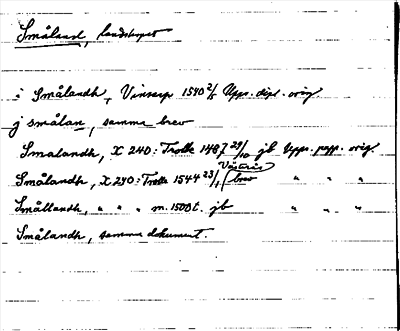 Småland, landskapet
i Smålandh, Vinserp 1540 2/5 Upps. dipl. orig.
j smålan, samma brev
Smalandh, X 240: Trolle 1487 29/10 jb Upps. papp. orig.
Smålandh, X 240: Trolle 1544 23/1 Västerås brev " " "
Smållandh, " " " m. 1500t. jb " " "
Smålandh, samma dokument.